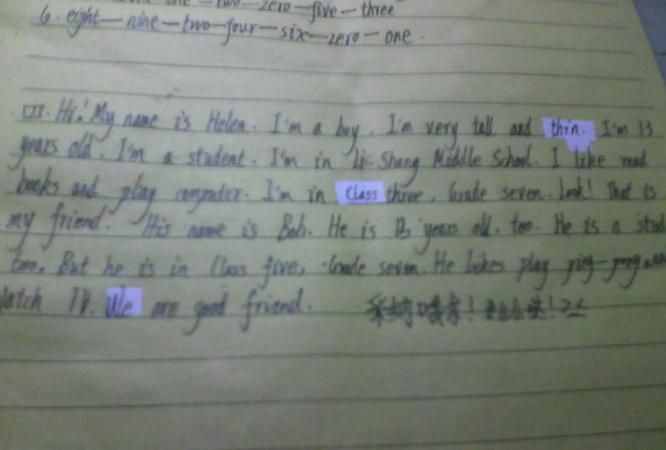 one — two — zero — five — three
6. eight — nine — two — four — six — zero — one.
VI. Hi! My name is Helen. I'm a boy. I'm very tall and thin. I'm 13
years old. I'm a student. I'm in Li Shang Middle School. I like read
books and play computer. I'm in Class three, Grade seven. Look! That is
my friend. His name is Bob. He is 13 years old, too. He is a stud
too. But he is in Class five, Grade seven. He likes play ping-pong and
Watch TV. We are good friend.